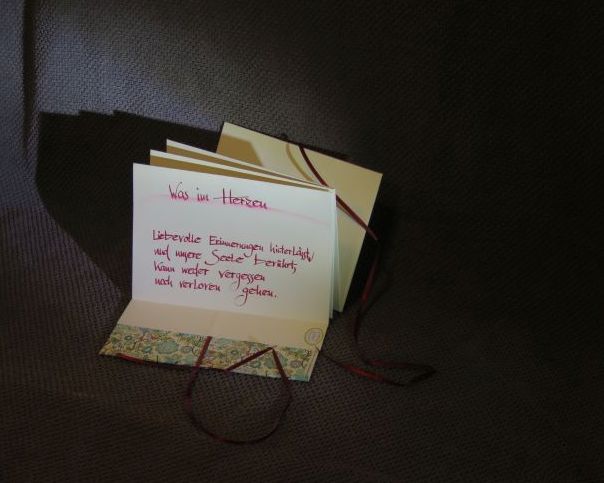 Was im Herzen
Liebevolle Erinnerungen hinterlässt,
und unsere Seele berührt,
kann weder vergessen
noch verloren gehen.